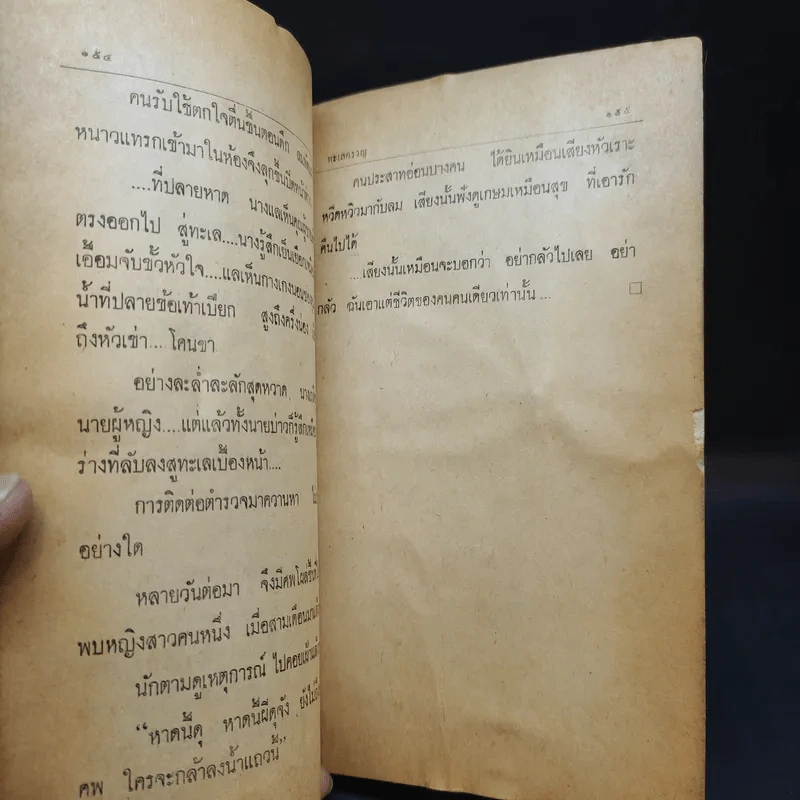 ๑๕๔
คนรับใช้ตกใจตื่นขึ้นตอนดึก
หนาวแทรกเข้ามาในห้องจึงลุกขึ้นปิดหน้า
....ที่ปลายหาด นางแลเห็นคุณผู้
ตรงออกไป สู่ทะเล....นางรู้สึกเย็นเยือก
เอื้อมจับขั้วหัวใจ....แลเห็นกางเกงนอน
น้ำที่ปลายข้อเท้าเปียก สูงถึงครึ่งน่อง
ถึงหัวเข่า.... โคนขา
อย่างละล่ำละลักสุดหวาด
นายผู้หญิง....แต่แล้วทั้งนายบ่าวก็รู้สึก
ร่างที่ลับลงสู่ทะเลเบื้องหน้า....
การติดต่อตำรวจมาควานหา
อย่างใด
หลายวันต่อมา จึงมีศพโผล่ขึ้น
พบหญิงสาวคนหนึ่ง เมื่อสามเดือน
นักตามดูเหตุการณ์ ไปคอยเฝ้า
“หาดนี้ดุ หาดนี้ผีดุจัง ยังไม่
ศพ ใครจะกล้าลงน้ำแถวนี้”
ทะเลครวญ
๑๕๕
คนประสาทอ่อนบางคน ได้ยินเหมือนเสียงหัวเราะ
หวีดหวิวมากับลม เสียงนั้นฟังดูเกษมเหมือนสุข ที่เอารัก
คืนไปได้
....เสียงนั้นเหมือนจะบอกว่า อย่ากลัวไปเลย อย่า
กลัว ฉันเอาแต่ชีวิตของคนคนเดียวเท่านั้น ...